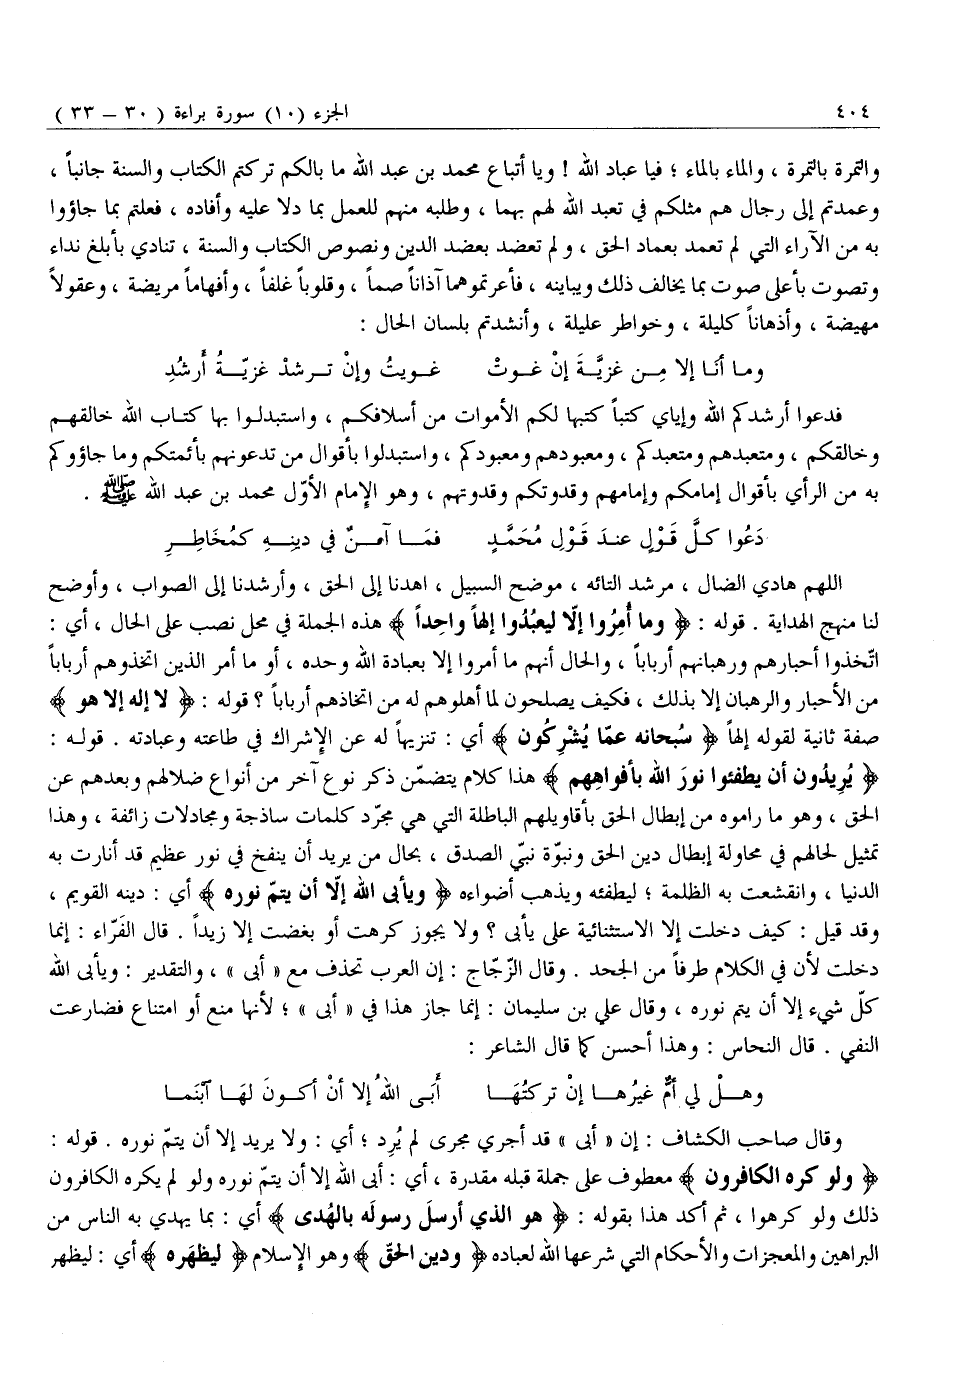 ٤٠٤ الجزء (١٠) سورة براءة ( ٣٠ – ٣٣ )
والتمرة بالتمرة ، والماء بالماء ؛ فيا عباد الله ! ويا أتباع محمد بن عبد الله ما بالكم تركتم الكتاب والسنة جانباً ،
وعمدتم إلى رجال هم مثلكم في تعبد الله لهم بهما ، وطلبه منهم للعمل بما دلا عليه وأفاده ، فعلتم بما جاؤوا
به من الآراء التي لم تعمد بعماد الحق ، ولم تعضد بعضد الدين ونصوص الكتاب والسنة ، تنادي بأبلغ نداء
وتصوت بأعلى صوت بما يخالف ذلك ويباينه ، فأعرتموهما آذاناً صماً ، وقلوباً غلفاً ، وأفهاماً مريضة ، وعقولاً
مهيضة ، وأذهاناً كليلة ، وخواطر عليلة ، وأنشدتم بلسان الحال :
وما أنَا إلا مِن غزيَّةَ إنْ غوتْ غويتُ وإنْ ترشدْ غزيّةُ أَرشُدِ
فدعوا أرشدكم الله وإياي كتباً كتبها لكم الأموات من أسلافكم ، واستبدلوا بها كتاب الله خالقهم
وخالقكم ، ومتعبدهم ومتعبدكم ، ومعبودهم ومعبودكم ، واستبدلوا بأقوال من تدعونهم بأئمتكم وما جاؤوكم
به من الرأي بأقوال إمامكم وإمامهم وقدوتكم وقدوتهم ، وهو الإمام الأوّل محمد بن عبد الله ﷺ .
دَعُوا كلَّ قَوْلٍ عندَ قَوْلِ مُحَمَّدٍ فمَا آمنٌ في دينِهِ كمُخَاطِرِ
اللهم هادي الضال ، مرشد التائه ، موضح السبيل ، اهدنا إلى الحق ، وأرشدنا إلى الصواب ، وأوضح
لنا منهج الهداية . قوله : ﴿ وما أُمِرُوا إلّا ليعبُدُوا إلهاً واحِداً ﴾ هذه الجملة في محل نصب على الحال ، أي :
اتّخذوا أحبارهم ورهبانهم أرباباً ، والحال أنهم ما أمروا إلا بعبادة الله وحده ، أو ما أمر الذين اتخذوهم أرباباً
من الأحبار والرهبان إلا بذلك ، فكيف يصلحون لما أهلوهم له من اتخاذهم أرباباً ؟ قوله : ﴿ لا إله إلا هو ﴾
صفة ثانية لقوله إلهاً ﴿ سبحانه عمّا يُشْرِكُون ﴾ أي : تنزيهاً له عن الإشراك في طاعته وعبادته . قوله :
﴿ يُرِيدُون أن يطفئوا نورَ الله بأفواهِهم ﴾ هذا كلام يتضمّن ذكر نوع آخر من أنواع ضلالهم وبعدهم عن
الحق ، وهو ما راموه من إبطال الحق بأقاويلهم الباطلة التي هي مجرّد كلمات ساذجة ومجادلات زائفة ، وهذا
تمثيل لحالهم في محاولة إبطال دين الحق ونبوّة نبيّ الصدق ، بحال من يريد أن ينفخ في نور عظيم قد أنارت به
الدنيا ، وانقشعت به الظلمة ؛ ليطفئه ويذهب أضواءه ﴿ ويأبى الله إلّا أن يتمّ نوره ﴾ أي : دينه القويم ،
وقد قيل : كيف دخلت إلا الاستثنائية على يأبى ؟ ولا يجوز كرهت أو بغضت إلا زيداً . قال الفَرّاء : إنما
دخلت لأن في الكلام طرفاً من الجحد . وقال الزّجّاج : إن العرب تحذف مع « أبى » ، والتقدير : ويأبى الله
كلّ شيء إلا أن يتم نوره ، وقال علي بن سليمان : إنما جاز هذا في « أبى » ؛ لأنها منع أو امتناع فضارعت
النفي . قال النحاس : وهذا أحسن كما قال الشاعر :
وهلْ لي أمٌّ غيرُها إنْ تركتُهَا أَبَى اللهُ إلا أنْ أكونَ لهَا آبْنَما
وقال صاحب الكشاف : إن « أبى » قد أجري مجرى لم يُرِد ؛ أي : ولا يريد إلا أن يتمّ نوره . قوله :
﴿ ولو كره الكافرون ﴾ معطوف على جملة قبله مقدرة ، أي : أبى الله إلا أن يتمّ نوره ولو لم يكره الكافرون
ذلك ولو كرهوا ، ثم أكد هذا بقوله : ﴿ هو الذي أرسلَ رسولَه بالهُدى ﴾ أي : بما يهدي به الناس من
البراهين والمعجزات والأحكام التي شرعها الله لعباده ﴿ ودين الحقّ ﴾ وهو الإسلام ﴿ ليظهَره ﴾ أي : ليظهر